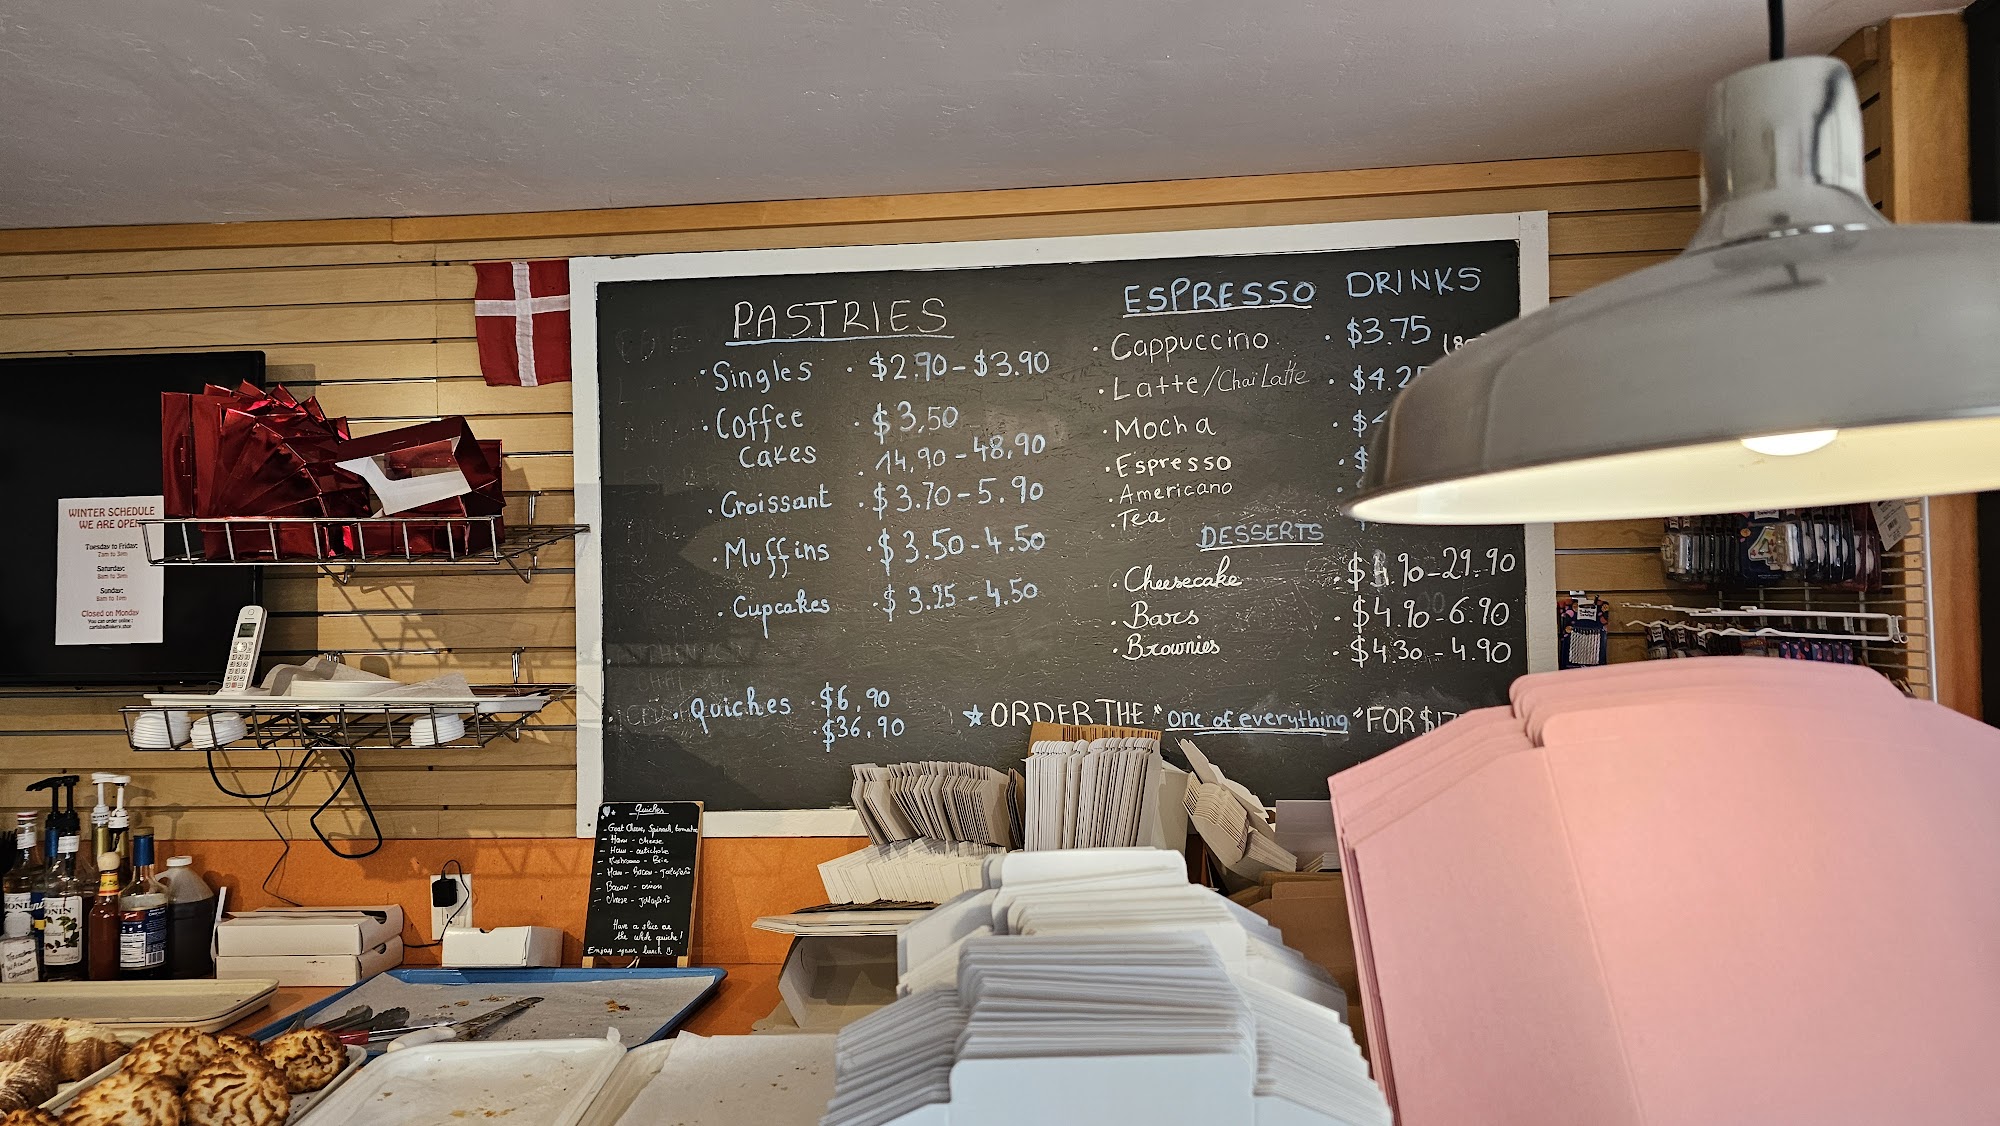 PASTRIES
· Singles · $2.90 - $3.90
· Coffee · $3.50
Cakes · 14.90 - 48.90
· Croissant · $3.70 - 5.90
· Muffins · $3.50 - 4.50
· Cupcakes · $3.25 - 4.50
· Quiches · $6.90
· $36.90
ESPRESSO DRINKS
· Cappuccino · $3.75
· Latte/Chai Latte · $4.25
· Mocha · $
· Espresso · $
· Americano
· Tea
DESSERTS
· Cheesecake
29.90
· Bars · $4.90 - 6.90
· Brownies · $4.30 - 4.90
★ ORDER THE "One of everything" FOR $
WINTER SCHEDULE
WE ARE OPEN
Tuesday to Friday:
7am to 3pm
Saturday:
8am to 3pm
Sunday:
8am to 1pm
Closed on Monday
You can order online :
Quiches
- Goat Cheese, Spinach, tomato
- Ham - cheese
- Ham - artichoke
- Mushroom - Brie
- Ham - Bacon - Jalapeño
- Bacon - onion
- Cheese - Jalapeño
Have a slice or
the whole quiche!
Enjoy your lunch